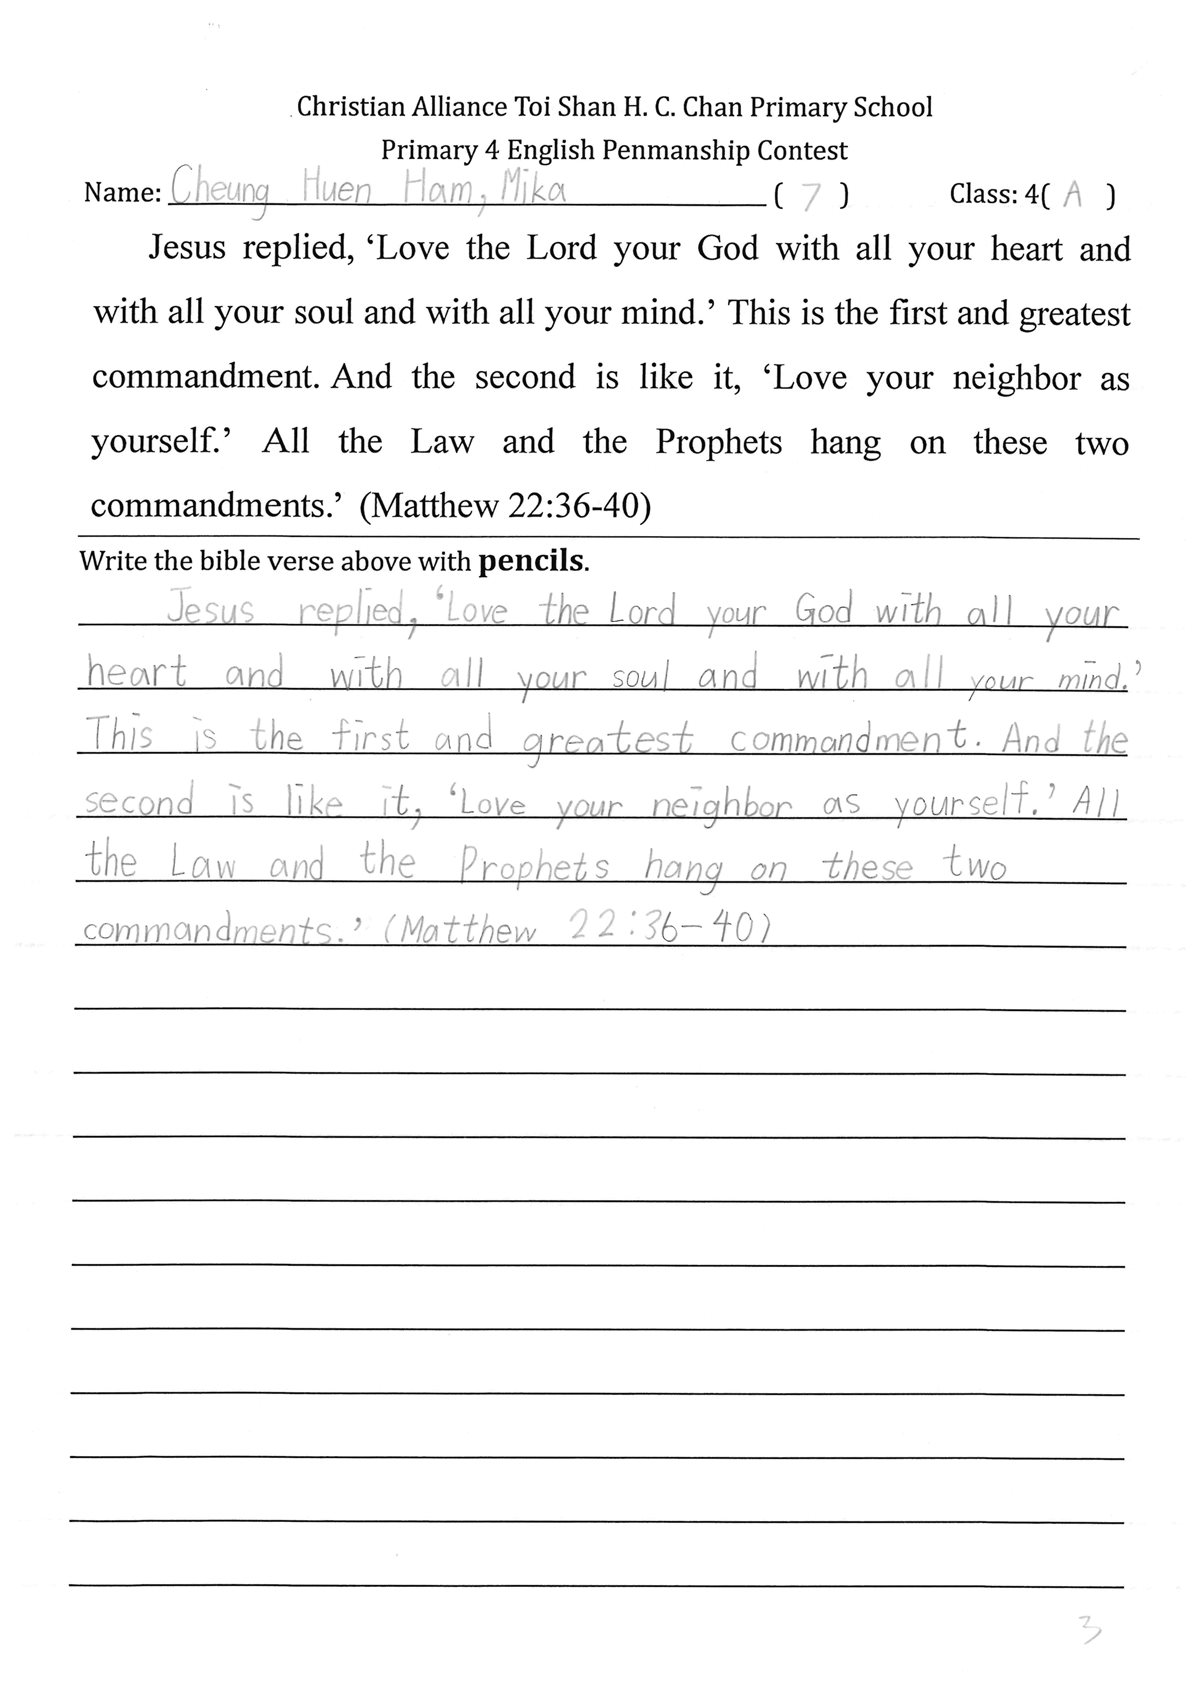 Christian Alliance Toi Shan H. C. Chan Primary School
Primary 4 English Penmanship Contest
Name: Cheung Huen Ham, Mika ( 7 ) Class: 4( A )
Jesus replied, ‘Love the Lord your God with all your heart and
with all your soul and with all your mind.’ This is the first and greatest
commandment. And the second is like it, ‘Love your neighbor as
yourself.’ All the Law and the Prophets hang on these two
commandments.’ (Matthew 22:36-40)
Write the bible verse above with pencils.
Jesus replied, ‘Love the Lord your God with all your
heart and with all your soul and with all your mind.’
This is the first and greatest commandment. And the
second is like it, ‘Love your neighbor as yourself.’ All
the Law and the Prophets hang on these two
commandments.’ (Matthew 22:36-40)
3